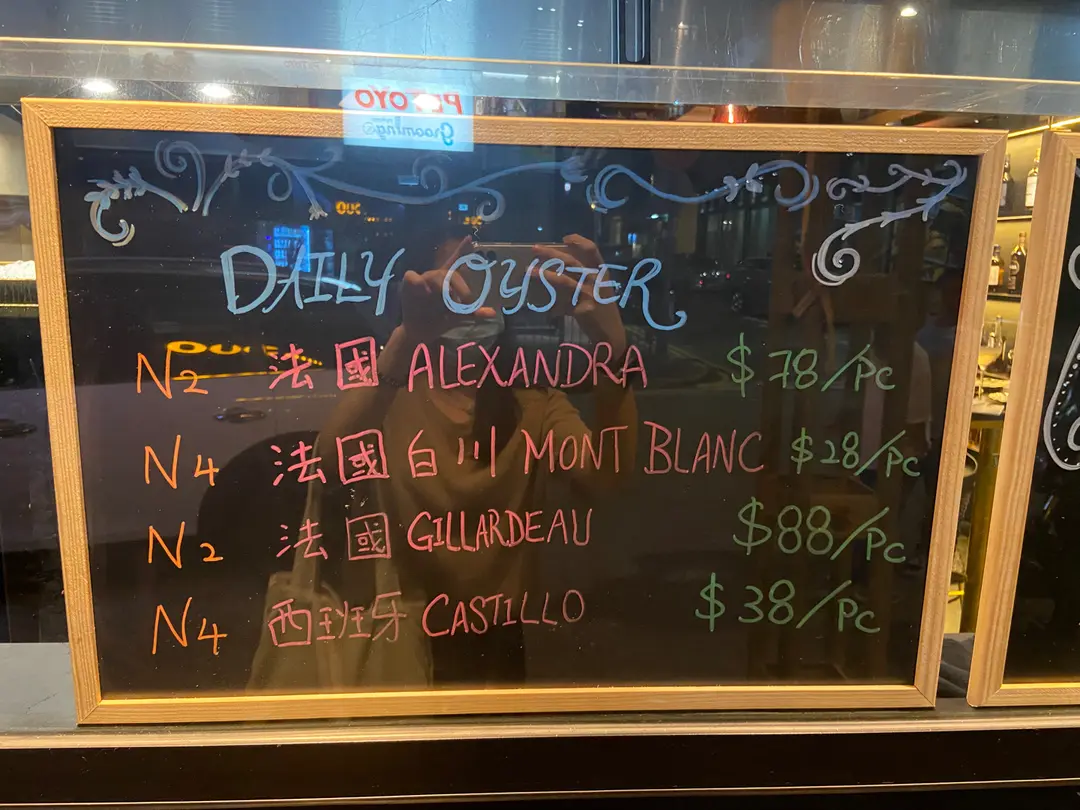 PETOYO
grooming
DAILY OYSTER
N2 法國 ALEXANDRA $78/PC
N4 法國 白川 MONT BLANC $28/PC
N2 法國 GILLARDEAU $88/PC
N4 西班牙 CASTILLO $38/PC